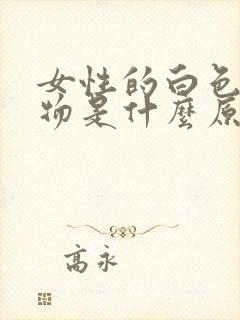 女性的白色
物是什麼原
高永